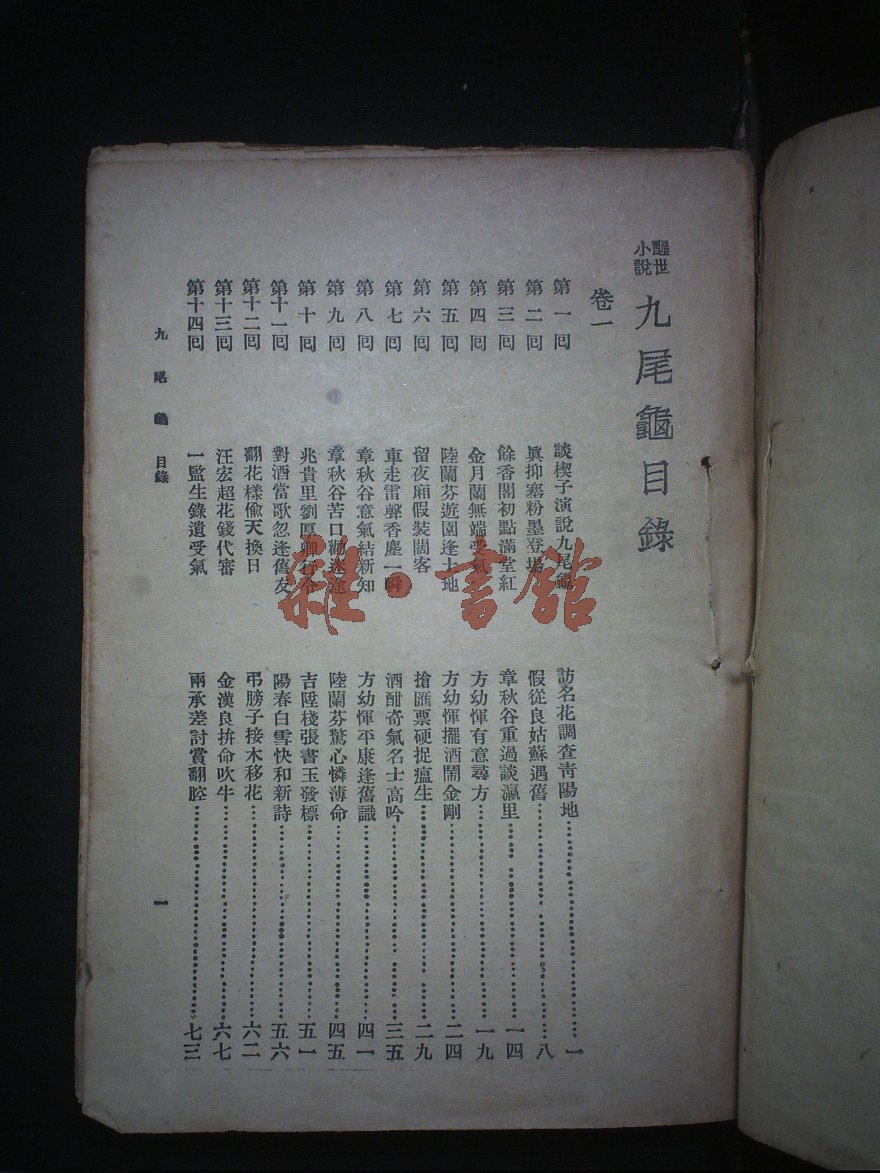 醒世小說 九尾龜目錄
卷一
第一囘 談楔子演說九尾龜 訪名花調查靑陽地 一
第二囘 眞抑塞粉墨登場 假從良姑蘇遇舊 八
第三囘 餘香閣初點滿堂紅 章秋谷重過談瀛里 一四
第四囘 金月蘭無端受氣 方幼惲有意尋方 一九
第五囘 陸蘭芬遊園逢土地 方幼惲擺酒鬧金剛 二四
第六囘 留夜廂假裝闊客 搶匯票硬捉瘟生 二九
第七囘 車走雷聲香塵一瞬 酒酣奇氣名士高吟 三五
第八囘 章秋谷意氣結新知 方幼惲平康逢舊識 四一
第九囘 章秋谷苦口勸迷途 陸蘭芬驚心憐薄命 四五
第十囘 兆貴里劉厚卿行令 吉陞棧張書玉發標 五一
第十一囘 對酒當歌忽逢舊友 陽春白雪快和新詩 五六
第十二囘 翻花樣偷天換日 弔膀子接木移花 六二
第十三囘 汪宏超花錢代審 金漢良拚命吹牛 六七
第十四囘 一監生錄遺受氣 兩承差討賞翻腔 七三
九尾龜 目錄 一
雜·書館